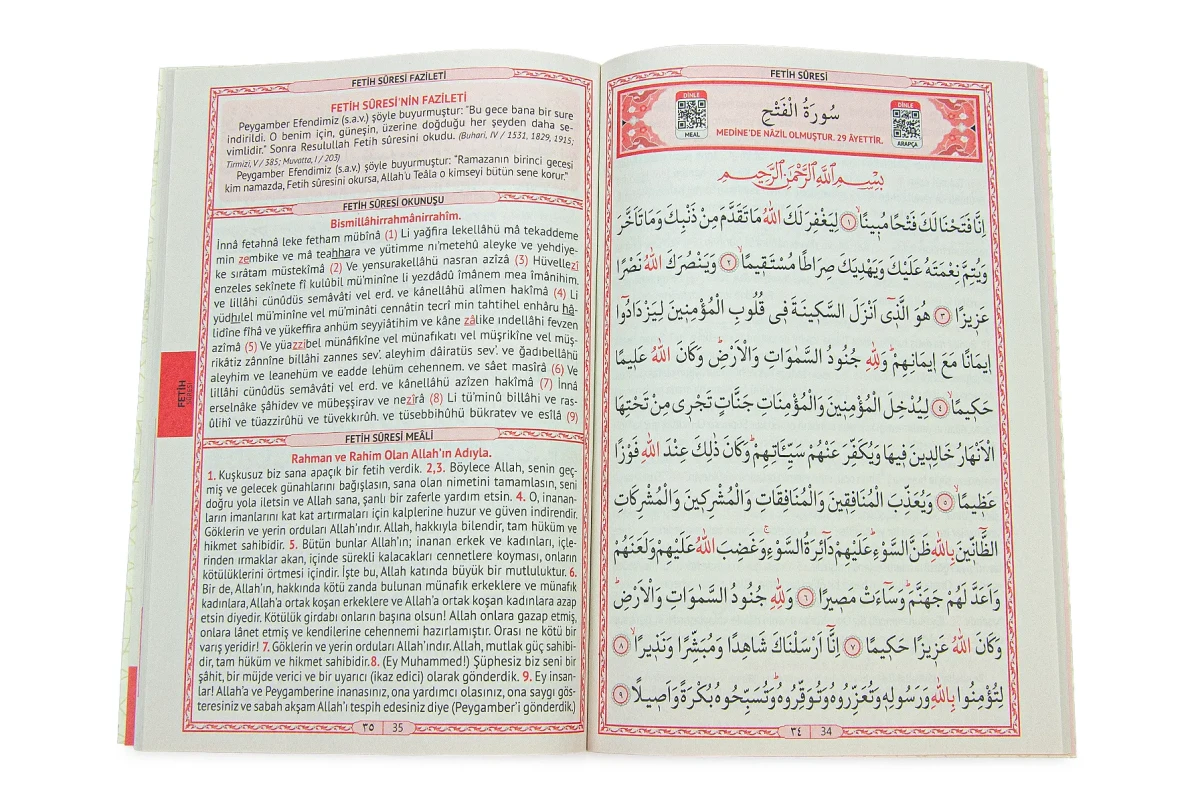 FETİH SÛRESİ FAZİLETİ
FETİH SÛRESİ'NİN FAZİLETİ
Peygamber Efendimiz (s.a.v.) şöyle buyurmuştur: "Bu gece bana bir sure
indirildi. O benim için, güneşin, üzerine doğduğu her şeyden daha se-
vimlidir." Sonra Resulullah Fetih sûresini okudu. (Buhari, IV / 1531, 1829, 1915;
Tirmizi, V / 385; Muvatta, I / 203)
Peygamber Efendimiz (s.a.v.) şöyle buyurmuştur: "Ramazanın birinci gecesi
kim namazda, Fetih sûresini okursa, Allah'u Teâla o kimseyi bütün sene korur."
FETİH SÛRESİ OKUNUŞU
Bismillâhirrahmânirrahîm.
İnnâ fetahnâ leke fetham mübînâ (1) Li yağfira lekellâhü mâ tekaddeme
min zembike ve mâ teahhara ve yütimme ni'metehû aleyke ve yehdiye-
ke sırâtam müstekîmâ (2) Ve yensurakellâhü nasran azîzâ (3) Hüvellezî
enzeles sekînete fî kulûbil mü'minîne li yezdâdû îmânem mea îmânihim.
ve lillâhi cünûdüs semâvâti vel erd. ve kânellâhü alîmen hakîmâ (4) Li
yüdhılel mü'minîne vel mü'minâti cennâtin tecrî min tahtihel enhâru hâ-
lidîne fîhâ ve yükeffira anhüm seyyiâtihim ve kâne zâlike ındellâhi fevzen
azîmâ (5) Ve yüazzibel münâfikîne vel münafikatı vel müşrikîne vel müş-
rikâtiz zânnîne billâhi zannes sev'. aleyhim dâiratüs sev'. ve ğadıbellâhü
aleyhim ve leanehüm ve eadde lehüm cehennem. ve sâet masîrâ (6) Ve
lillâhi cünûdüs semâvâti vel erd. ve kânellâhü azîzen hakîmâ (7) İnnâ
erselnâke şâhidev ve mübeşşirav ve nezîrâ (8) Li tü'minû billâhi ve ras-
ûlihî ve tüazzirûhü ve tüvekkırûh. ve tüsebbihûhü bükratev ve esîlâ (9)
FETİH SÛRESİ MEÂLİ
Rahman ve Rahim Olan Allah'ın Adıyla.
1. Kuşkusuz biz sana apaçık bir fetih verdik. 2,3. Böylece Allah, senin geç-
miş ve gelecek günahlarını bağışlasın, sana olan nimetini tamamlasın, seni
doğru yola iletsin ve Allah sana, şanlı bir zaferle yardım etsin. 4. O, inanan-
ların imanlarını kat kat artırmaları için kalplerine huzur ve güven indirendir.
Göklerin ve yerin orduları Allah'ındır. Allah, hakkıyla bilendir, tam hüküm ve
hikmet sahibidir. 5. Bütün bunlar Allah'ın; inanan erkek ve kadınları, içle-
rinden ırmaklar akan, içinde sürekli kalacakları cennetlere koyması, onların
kötülüklerini örtmesi içindir. İşte bu, Allah katında büyük bir mutluluktur. 6.
Bir de, Allah'ın, hakkında kötü zanda bulunan münafık erkeklere ve münafık
kadınlara, Allah'a ortak koşan erkeklere ve Allah'a ortak koşan kadınlara azap
etsin diyedir. Kötülük girdabı onların başına olsun! Allah onlara gazap etmiş,
onlara lânet etmiş ve kendilerine cehennemi hazırlamıştır. Orası ne kötü bir
varış yeridir! 7. Göklerin ve yerin orduları Allah'ındır. Allah, mutlak güç sahibi-
dir, tam hüküm ve hikmet sahibidir. 8. (Ey Muhammed!) Şüphesiz biz seni bir
şâhit, bir müjde verici ve bir uyarıcı (ikaz edici) olarak gönderdik. 9. Ey insan-
lar! Allah'a ve Peygamberine inanasınız, ona yardımcı olasınız, ona saygı gös-
teresiniz ve sabah akşam Allah'ı tespih edesiniz diye (Peygamber'i gönderdik.)
٣٥ 35
FETİH
SÛRESİ
FETİH SÛRESİ
DİNLE
MEAL
سُورَةُ الْفَتْحِ
MEDİNE'DE NÂZİL OLMUŞTUR. 29 ÂYETTİR.
DİNLE
ARAPÇA
بِسْمِ اللهِ الرَّحْمٰنِ الرَّحِيمِ
اِنَّا فَتَحْنَا لَكَ فَتْحًا مُبِينًاۙ ﴿١﴾ لِيَغْفِرَ لَكَ اللهُ مَا تَقَدَّمَ مِنْ ذَنْبِكَ وَمَا تَاَخَّرَ
وَيُتِمَّ نِعْمَتَهُ عَلَيْكَ وَيَهْدِيَكَ صِرَاطًا مُسْتَقِيمًاۙ ﴿٢﴾ وَيَنْصُرَكَ اللهُ نَصْرًا
عَزِيزًا ﴿٣﴾ هُوَ الَّذِٓى اَنْزَلَ السَّكِينَةَ فِى قُلُوبِ الْمُؤْمِنِينَ لِيَزْدَادُٓوا
اِيمَانًا مَعَ اِيمَانِهِمْۜ وَلِلّٰهِ جُنُودُ السَّمٰوَاتِ وَالْاَرْضِۜ وَكَانَ اللهُ عَلِيمًا
حَكِيمًاۙ ﴿٤﴾ لِيُدْخِلَ الْمُؤْمِنِينَ وَالْمُؤْمِنَاتِ جَنَّاتٍ تَجْرِى مِنْ تَحْتِهَا
الْاَنْهَارُ خَالِدِينَ فِيهَا وَيُكَفِّرَ عَنْهُمْ سَيِّـَٔاتِهِمْۜ وَكَانَ ذٰلِكَ عِنْدَ اللهِ فَوْزًا
عَظِيمًاۙ ﴿٥﴾ وَيُعَذِّبَ الْمُنَافِقِينَ وَالْمُنَافِقَاتِ وَالْمُشْرِكِينَ وَالْمُشْرِكَاتِ
الظَّٓانِّينَ بِاللهِ ظَنَّ السَّوْءِۜ عَلَيْهِمْ دَٓائِرَةُ السَّوْءِۚ وَغَضِبَ اللهُ عَلَيْهِمْ وَلَعَنَهُمْ
وَاَعَدَّ لَهُمْ جَهَنَّمَۜ وَسَٓاءَتْ مَصِيرًا ﴿٦﴾ وَلِلّٰهِ جُنُودُ السَّمٰوَاتِ وَالْاَرْضِۜ
وَكَانَ اللهُ عَزِيزًا حَكِيمًا ﴿٧﴾ اِنَّٓا اَرْسَلْنَاكَ شَاهِدًا وَمُبَشِّرًا وَنَذِيرًاۙ ﴿٨﴾
لِتُؤْمِنُوا بِاللهِ وَرَسُولِهِ وَتُعَزِّرُوهُ وَتُوَقِّرُوهُۜ وَتُسَبِّحُوهُ بُكْرَةً وَاَصِيلًا ﴿٩﴾
٣٤ 34